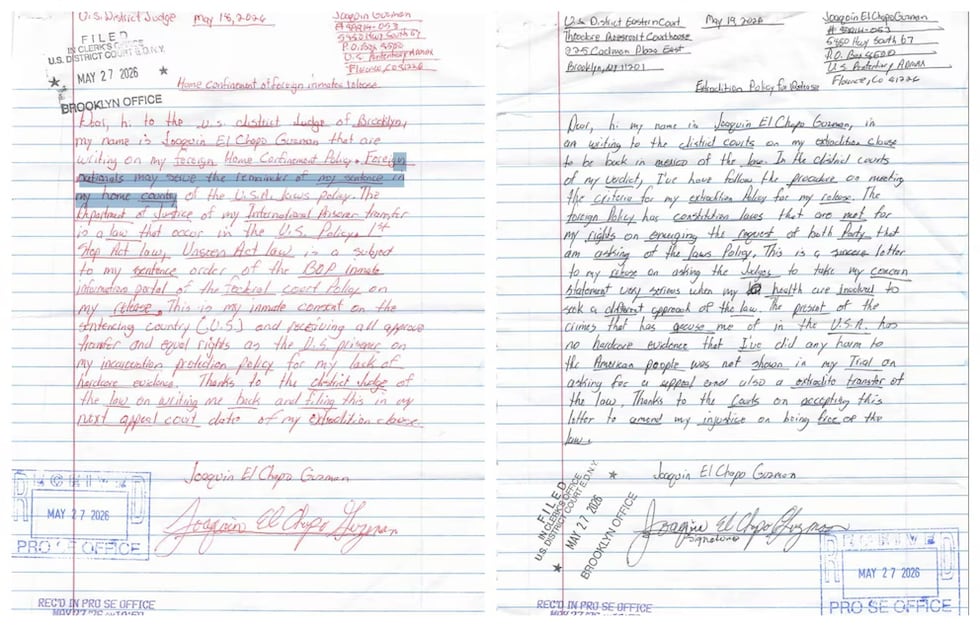 U.S. District Judge May 18, 2026
Joaquin Guzman
# 89914-053
5880 Hwy South 67
P.O. Box 8500
U.S Penitentiary ADMAX
Florence, Co 81226
FILED
IN CLERK'S OFFICE
U.S. DISTRICT COURT E.D.N.Y.
★ MAY 27 2026 ★
BROOKLYN OFFICE
Home confinement of foreign inmates release
Dear, hi to the U.S. district Judge of Brooklyn,
my name is Joaquin El Chapo Guzman that are
writing on my foreign Home Confinement Policy. Foreign
nationals may serve the remainder of my sentence in
my home county of the U.S.A. laws policy. The
Department of Justice of my International Prisoner Transfer
is a law that occur in the U.S. Policy. 1st
Step Act law, Unseen Act law is a subject
to my sentence order of the BOP inmate
information portal of the Federal court Policy on
my release. This is my inmate consent on the
sentencing country (U.S.) and receiving all approve
transfer and equal rights as the U.S prisoner on
my incarceration protection Policy for my lack of
hardcore evidence. Thanks to the district Judge of
the law on writing me back and filing this in my
next appeal court date of my extradition clause.
Joaquin El Chapo Guzman
Joaquin El Chapo Guzman
RECEIVED
MAY 27 2026
PRO SE OFFICE
REC'D IN PRO SE OFFICE
U.S. District Eastern Court May 19, 2026
Theodore Roosevelt Courthouse
225 Cadman Plaza East
Brooklyn, NY 11201
Joaquin El Chapo Guzman
# 89914-053
5880 Hwy South 67
P.O. Box 8500
U.S Penitentiary ADMAX
Florence, Co 81226
Extradition Policy for Release
Dear, hi my name is Joaquin El Chapo Guzman, in
an writing to the district courts on my extradition clause
to be back in mexico of the law. In the district courts
of my verdict, I've have follow the procedure on meeting
the criteria for my extradition Policy for my release. The
foreign Policy has constitution laws that are met for
my rights on emerging the request of both Party that
am asking of the laws Policy. This is a sincere letter
to my release on asking the Judges to take my concern
statement very serious when my health are involved to
seek a different approach of the law. The present of the
crimes that has accuse me of in the U.S.A. has
no hardcore evidence that I've did any harm to
the American people was not shown in my Trial on
asking for a appeal and also a extradite transfer of
the law. Thanks to the Courts on accepting this
letter to amend my injustice on being free of the
law.
Joaquin El Chapo Guzman
Joaquin El Chapo Guzman
Signature
FILED
IN CLERK'S OFFICE
U.S. DISTRICT COURT E.D.N.Y.
★ MAY 27 2026 ★
BROOKLYN OFFICE
RECEIVED
MAY 27 2026
PRO SE OFFICE
REC'D IN PRO SE OFFICE